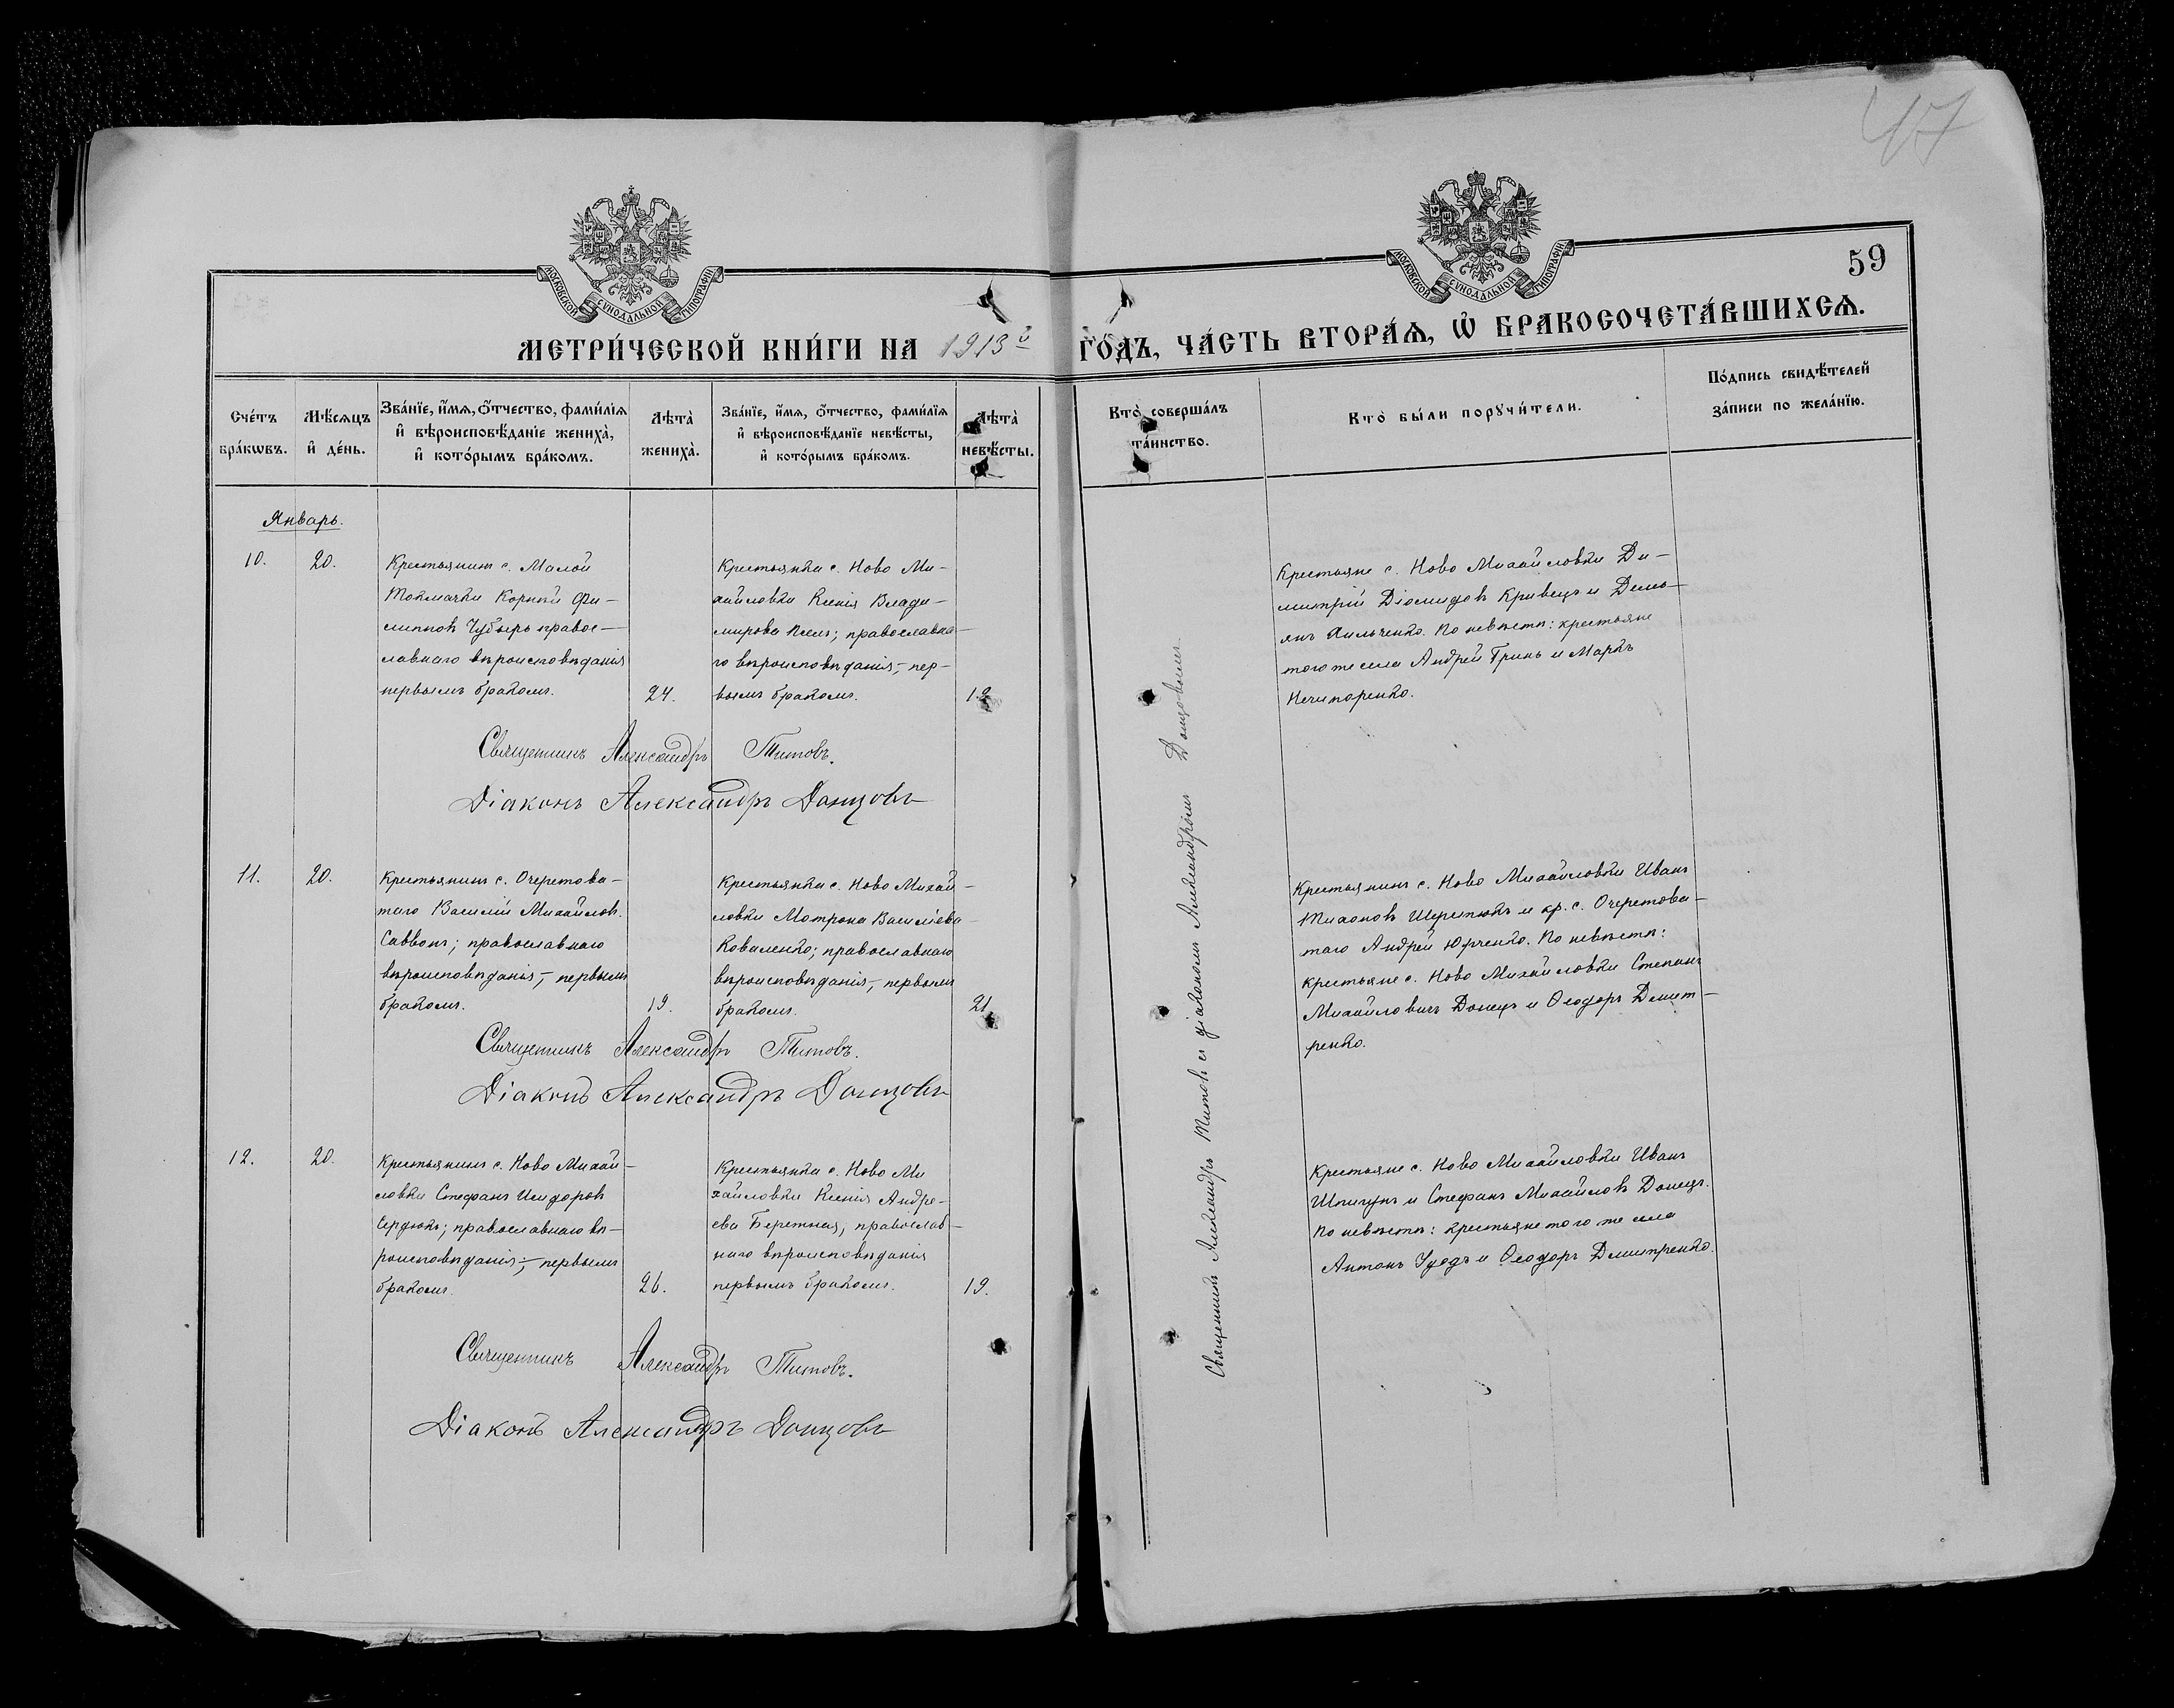 47
59
МОСКОВСКОЙ СѴНОДАЛЬНОЙ ТИПОГРАФІИ
МОСКОВСКОЙ СѴНОДАЛЬНОЙ ТИПОГРАФІИ
МЕТРИ́ЧЕСКОЙ КНИ́ГИ НА 1913й ГО́ДЪ, ЧА́СТЬ ВТОРА́Ѧ, Ѡ҆ БРАКОСОЧЕТА́ВШИХСѦ.
Сче́тъ бра́кѡвъ.
Мѣ́сѧцъ и҆ де́нь.
Зва́нїе, и҆́мѧ, ѻ҆́тчество, фами́лїѧ
и҆ вѣроисповѣ́данїе жениха̀,
и҆ кото́рымъ бра́комъ.
Лѣ́та̀ жениха̀.
Зва́нїе, и҆́мѧ, ѻ҆́тчество, фами́лїѧ
и҆ вѣроисповѣ́данїе невѣ́сты,
и҆ кото́рымъ бра́комъ.
Лѣ́та̀ невѣ́сты.
Кто̀ соверша́лъ
та́инство.
Кто̀ бы́ли порꙋчи́тели.
По́дпись свидѣ́телей
за́писи по жела́нїю.
Январь.
10.
20.
Крестьянинъ с. Малой
Токмачки Корнiй Фи-
липповъ Чубырь правос-
лавнаго вѣроисповѣданія
первымъ бракомъ.
24.
Крестьянка с. Ново Ми-
хайловки Ксенія Влади-
мирова; православна-
го вѣроисповѣданія,- пер-
вымъ бракомъ.
Крестьяне с. Ново Михайловки Ди-
митрій Діомидовъ Кривецъ и Демь-
янъ Хильченко. По невѣстѣ: крестьяне
того же села Андрей Гринь и Маркъ
Нечипоренко.
Священникъ Александръ Титовъ.
Діаконъ Александръ Донцовъ
11.
20.
Крестьянинъ с. Очеретова-
таго Василій Михайловъ
Саввонъ; православнаго
вѣроисповѣданія,- первымъ
бракомъ.
19.
Крестьянка с. Ново Михай-
ловки Матрона Васильева
Коваленко; православнаго
вѣроисповѣданія,- первымъ
бракомъ.
21.
Крестьянинъ с. Ново Михайловки Иванъ
Тихоновъ Шерстюкъ и кр. с. Очеретова-
таго Андрей Юрченко. По невѣстѣ:
крестьяне с. Ново Михайловки Степанъ
Михайловичъ Донецъ и Ѳеодоръ Дмит-
ренко.
Священникъ Александръ Титовъ.
Діаконъ Александръ Донцовъ
12.
20.
Крестьянинъ с. Ново Михай-
ловки Стефанъ Исидоровъ
Сердюкъ; православнаго вѣ-
роисповѣданія;- первымъ
бракомъ.
26.
Крестьянка с. Ново Ми
хайловки Ксенія Андре-
ева Бережная, православ-
наго вѣроисповѣданія
первымъ бракомъ.
19.
Крестьяне с. Ново Михайловки Иванъ
Шпигунъ и Стефанъ Михайловъ Донецъ.
По невѣстѣ: крестьяне того же села
Антонъ и Ѳеодоръ Дмитренко.
Священникъ Александръ Титовъ.
Діаконъ Александръ Донцовъ
Священникъ Александръ Титовъ съ діакономъ Александромъ Донцовымъ.